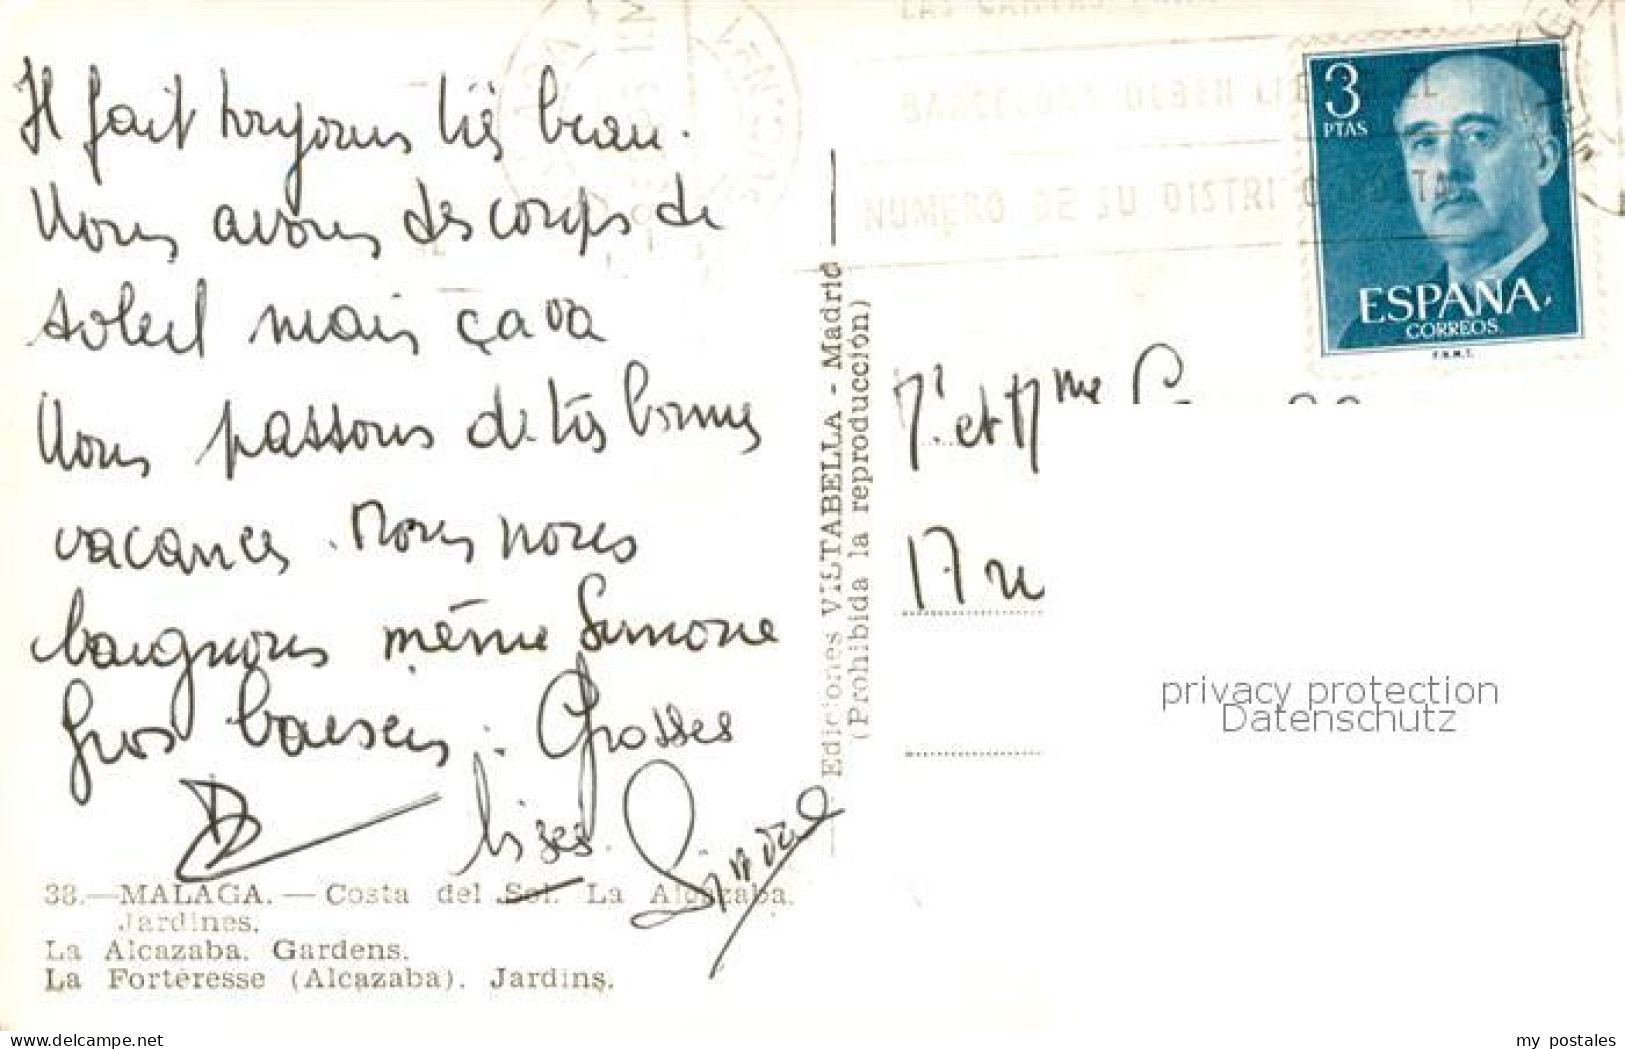 Il fait toujours très beau.
Nous avons des coups de
soleil mais ça va
Nous passons de très bonnes
vacances. Nous nous
baignons même Simone
Gros baisers. Grosses
bises.
38.—MALAGA.—Costa del Sol. La Alcazaba.
Jardines.
La Alcazaba. Gardens.
La Forteresse (Alcazaba). Jardins.
Ediciones VISTABELLA - Madrid
(Prohibida la reproducción)
BARCELONA DEBEN EL
NUMERO DE SU DISTRITO POSTAL
3
PTAS
ESPAÑA,
CORREOS.
F.N.M.T.
Mr et Mme
17 ru
privacy protection
Datenschutz
www.delcampe.net
my_postales